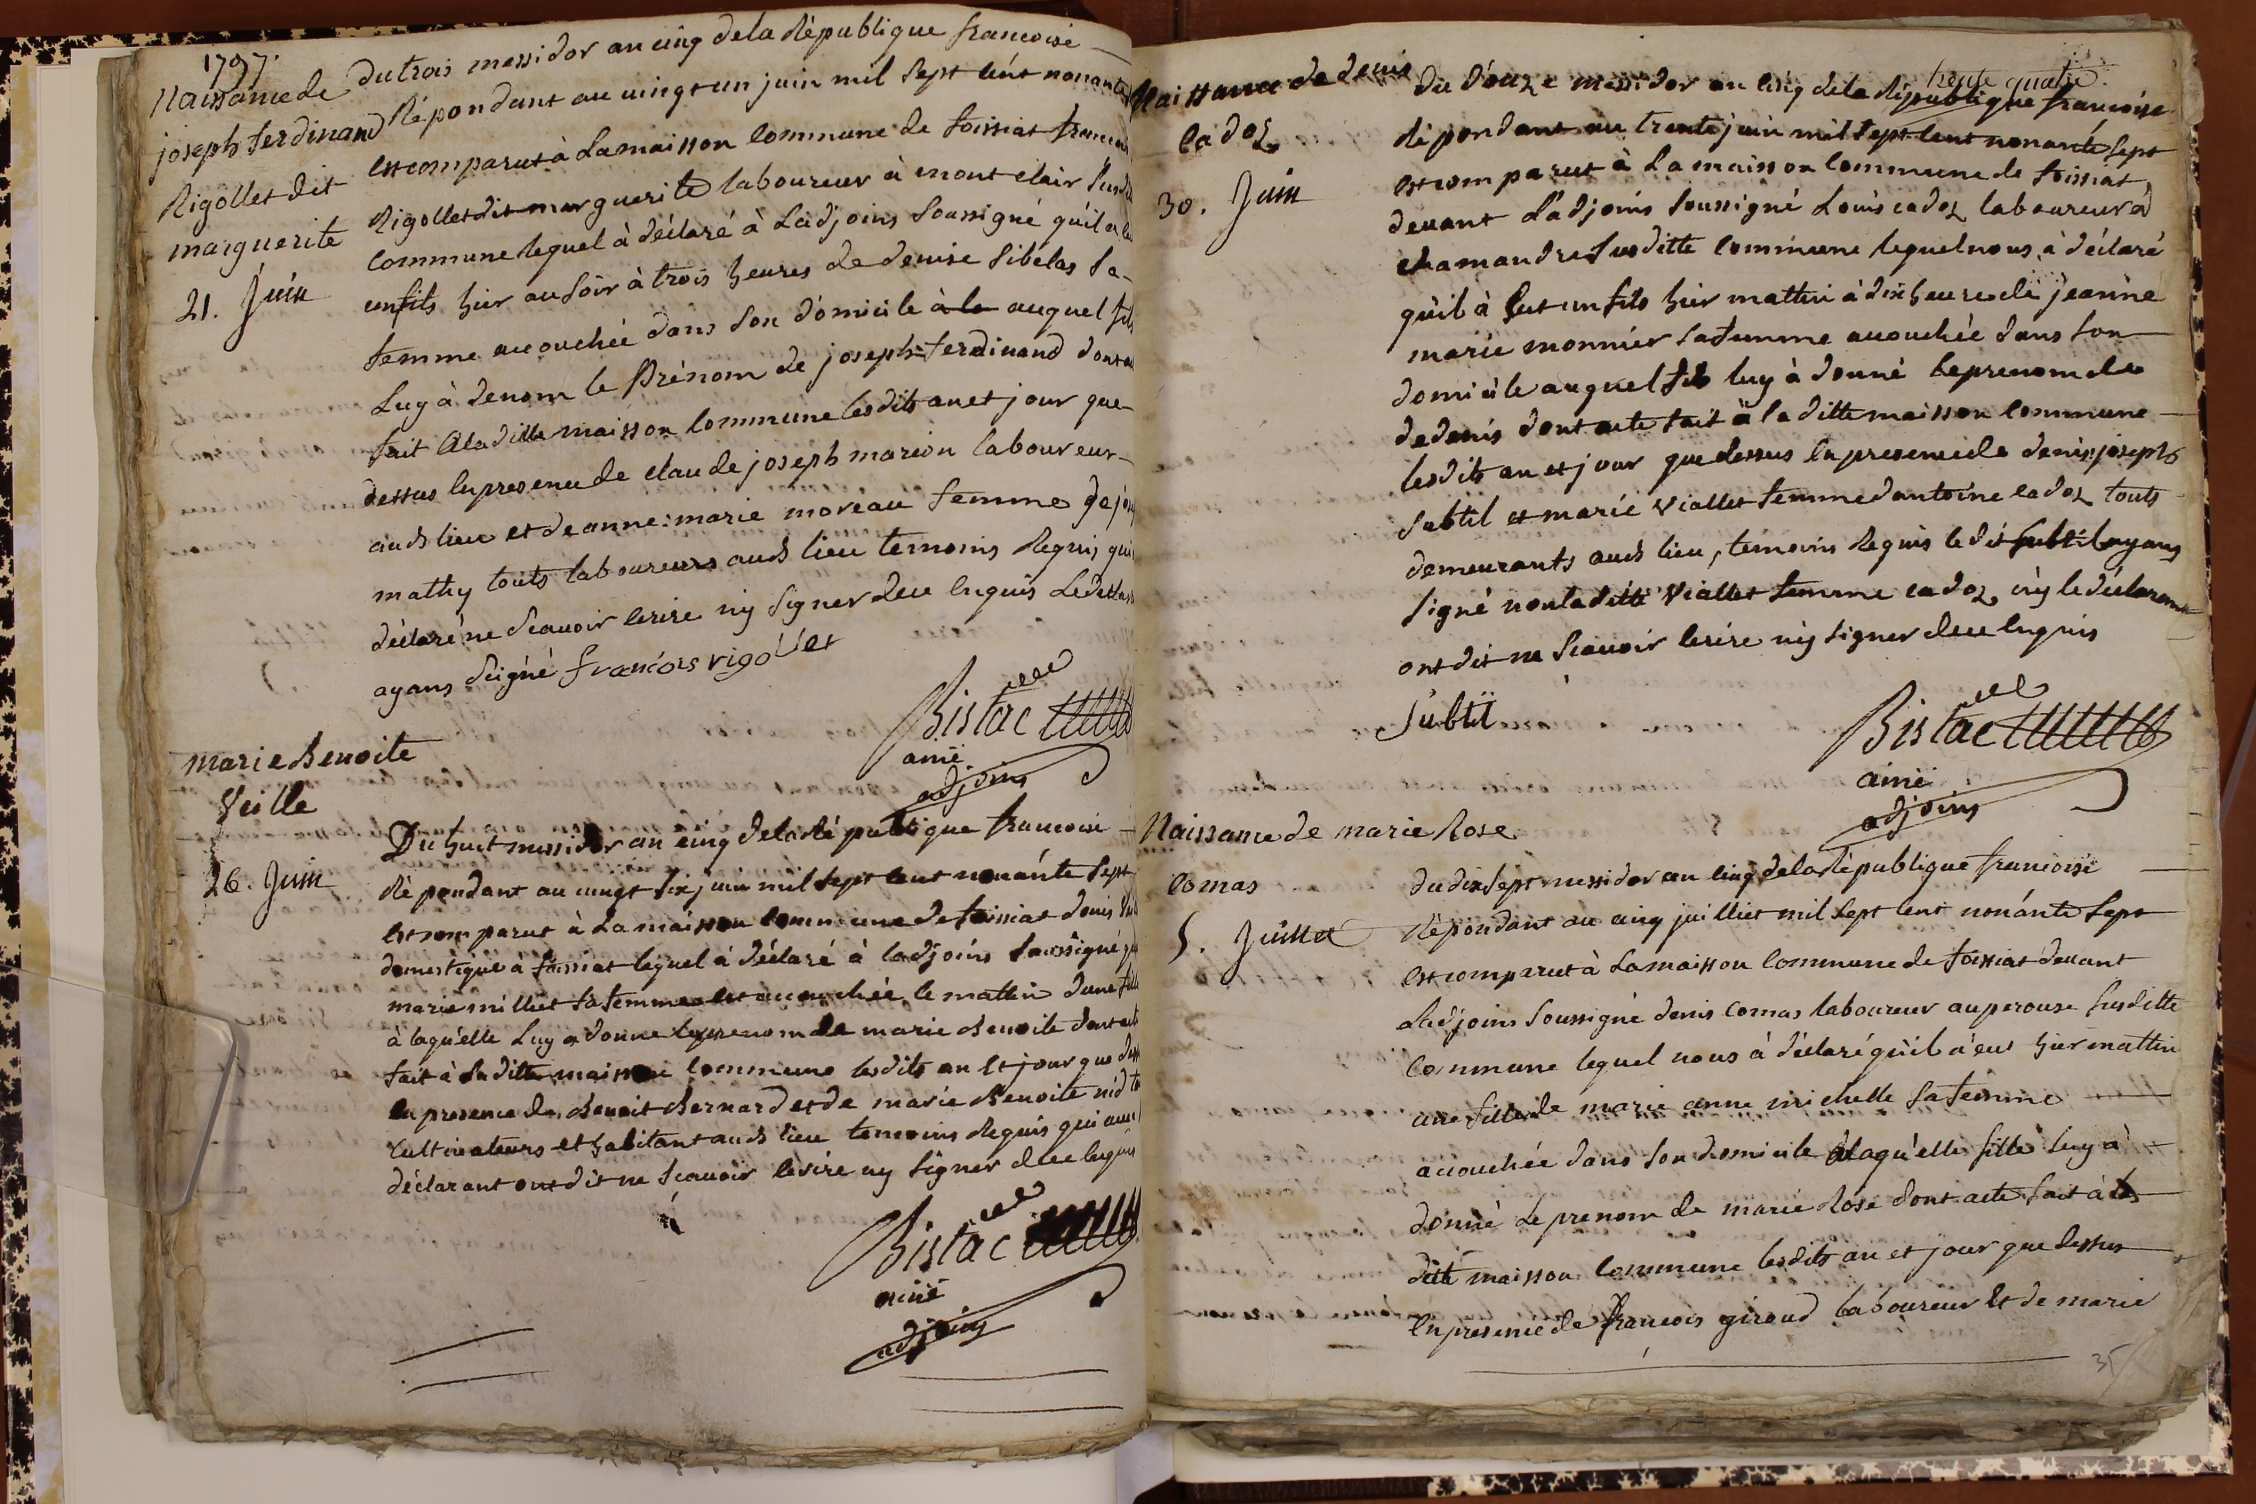 1797.
Naissance de
joseph ferdinand
Rigollet dit
marguerite
21. Juin
du trois messidor an cinq de la République francoise
Répondant au vingt un juin mil sept cent nonante
est comparut à la maisson commune de foissiat francois
Rigollet dit marguerite laboureur à mont clair susdite
commune lequel à déclaré à Ladjoins soussigné qu'il a eu
un fils hier au soir à trois heures de denise sibelas sa
femme accouchée dans son domicile à la auquel fils
Luy à de nom le Prénom de joseph ferdinand dont acte
fait a la ditte maisson commune lesdits an et jour que
dessus en presence de claude joseph marion laboureur
auds lieu et de anne marie moreau femme de
mathy touts laboureurs auds lieu temoins Requis qui
déclaré ne scavoir écrire ny signer dece enquis Le
ayans seigné françois rigollet
Bistac
ainé
adjoins
marie Benoite
Veille
26. Juin
Du huit messidor an cinq de la république francoise
Répondant au vingt six juin mil sept cent nonánte sept
est comparut à La maisson commune de foissiat denis
domestique a foissiat lequel á déclaré à ladjoins soussigné
marie milliet sa femme est accouchée le mattin dune fille
à laqu'elle Luy a donne le prenom de marie Benoite dont acte
fait à la ditte maisson commune lesdits an et jour que dess
en presence de Benoit Bernard et de marie Benoite nid
cultivateurs et habitant auds lieu temoins Requis qui avec
déclarant ont dit ne scavoir écrire ny signer dece enquis
Bistac
ainé
adjoins
trente quatre
Naissance de denis
cadoz
30. Juin
du douze messidor an cinq de la République francoise
Répondant au trente juin mil sept cent nonante sept
est comparut à La maisson commune de foissiat
devant Ladjoins soussigné Louis cadoz laboureur à
chamandre susditte commune lequel nous à déclaré
qu'il à eut un fils hier mattin à dix heures de jeanne
marie monnier sa femme accouchée dans son
domicile auquel fils luy à donné le prenom de
de denis dont acte fait à la ditte maisson commune
lesdits an et jour que dessus en presence de denis joseph
subtil et marie Viallet femme dantoine cadoz touts
demeurants auds lieu, temoins Requis le dit subtil ayans
signé non la ditte Viallet femme cadoz ny le déclarant
ont dit ne scavoir écrire ny signer dece enquis
Subtil
Bistac
ainé
adjoins
Naissance de marie Rose
comas
5. Juillet
du dix sept messidor an cinq de la République francoise
Répondant au cinq juilliet mil sept cent nonánte sept
est comparut à La maisson commune de foissiat devant
Ladjoins soussigné denis comas laboureur au perouze susditte
commune lequel nous à déclaré qu'il à eut hier mattin
une fille de marie anne michelle sa femme
accouchée dans son domicile à laqu'elle fille luy à
donné Le prenom de marie Rose dont acte fait à la
ditte maisson commune lesdits an et jour que dessus
en presence de francois giraud laboureur et de marie
35